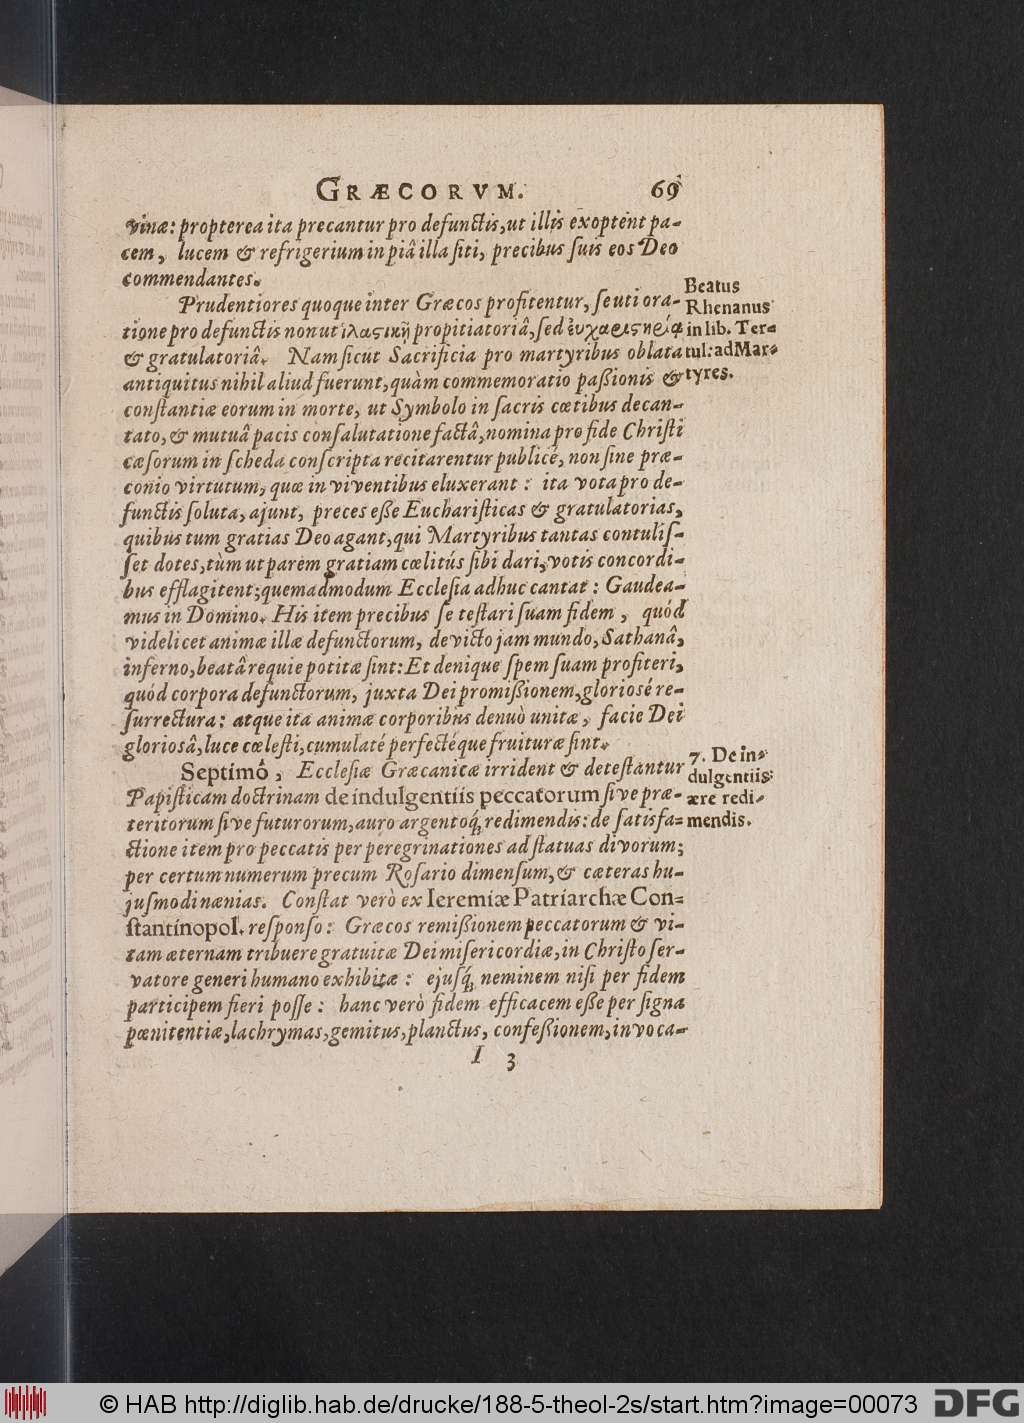 GRÆCORVM. 69
vinæ: propterea ita precantur pro defunctis, ut illis exoptent pa-
cem, lucem & refrigerium in piâ illa siti, precibus suis eos Deo
commendantes.
Prudentiores quoque inter Græcos profitentur, se uti ora-
tione pro defunctis non ut ἱλαϛικῇ propitiatoriâ, sed εὐχαριϛηρίᾳ
& gratulatoriâ. Nam sicut Sacrificia pro martyribus oblata
antiquitus nihil aliud fuerunt, quàm commemoratio paßionis &
constantiæ eorum in morte, ut Symbolo in sacris cœtibus decan-
tato, & mutuâ pacis consalutatione factâ, nomina pro fide Christi
cæsorum in scheda conscripta recitarentur publicè, non sine præ-
conio virtutum, quæ in viventibus eluxerant: ita vota pro de-
functis soluta, ajunt, preces eße Eucharisticas & gratulatorias,
quibus tum gratias Deo agant, qui Martyribus tantas contulis-
set dotes, tùm ut parem gratiam cœlitús sibi dari, votis concordi-
bus efflagitent; quemadmodum Ecclesia adhuc cantat: Gaudea-
mus in Domino. His item precibus se testari suam fidem, quód
videlicet animæ illæ defunctorum, devicto jam mundo, Sathanâ,
inferno, beatâ requie potitæ sint: Et denique spem suam profiteri,
quód corpora defunctorum, juxta Dei promißionem, gloriosé re-
surrectura: atque ita animæ corporibus denuò unitæ, facie Dei
gloriosâ, luce cœlesti, cumulaté perfectéque fruituræ sint.
Septimò, Ecclesiæ Græcanicæ irrident & detestantur
Papisticam doctrinam de indulgentiis peccatorum sive præ-
teritorum sive futurorum, auro argentoq́; redimendis: de satisfa-
ctione item pro peccatis per peregrinationes ad statuas divorum;
per certum numerum precum Rosario dimensum, & cæteras hu-
jusmodi nænias. Constat verò ex Ieremiæ Patriarchæ Con-
stantinopol. responso: Græcos remißionem peccatorum & vi-
tam æternam tribuere gratuitæ Dei misericordiæ, in Christo ser-
vatore generi humano exhibitæ: ejusq́; neminem nisi per fidem
participem fieri posse: hanc verò fidem efficacem eße per signa
pœnitentiæ, lachrymas, gemitus, planctus, confeßionem, invoca-
I 3
Beatus
Rhenanus
in lib. Ter-
tul: ad Mar-
tyres.
7. De in-
dulgentiis
ære redi-
mendis.
© HAB http://diglib.hab.de/drucke/188-5-theol-2s/start.htm?image=00073
DFG